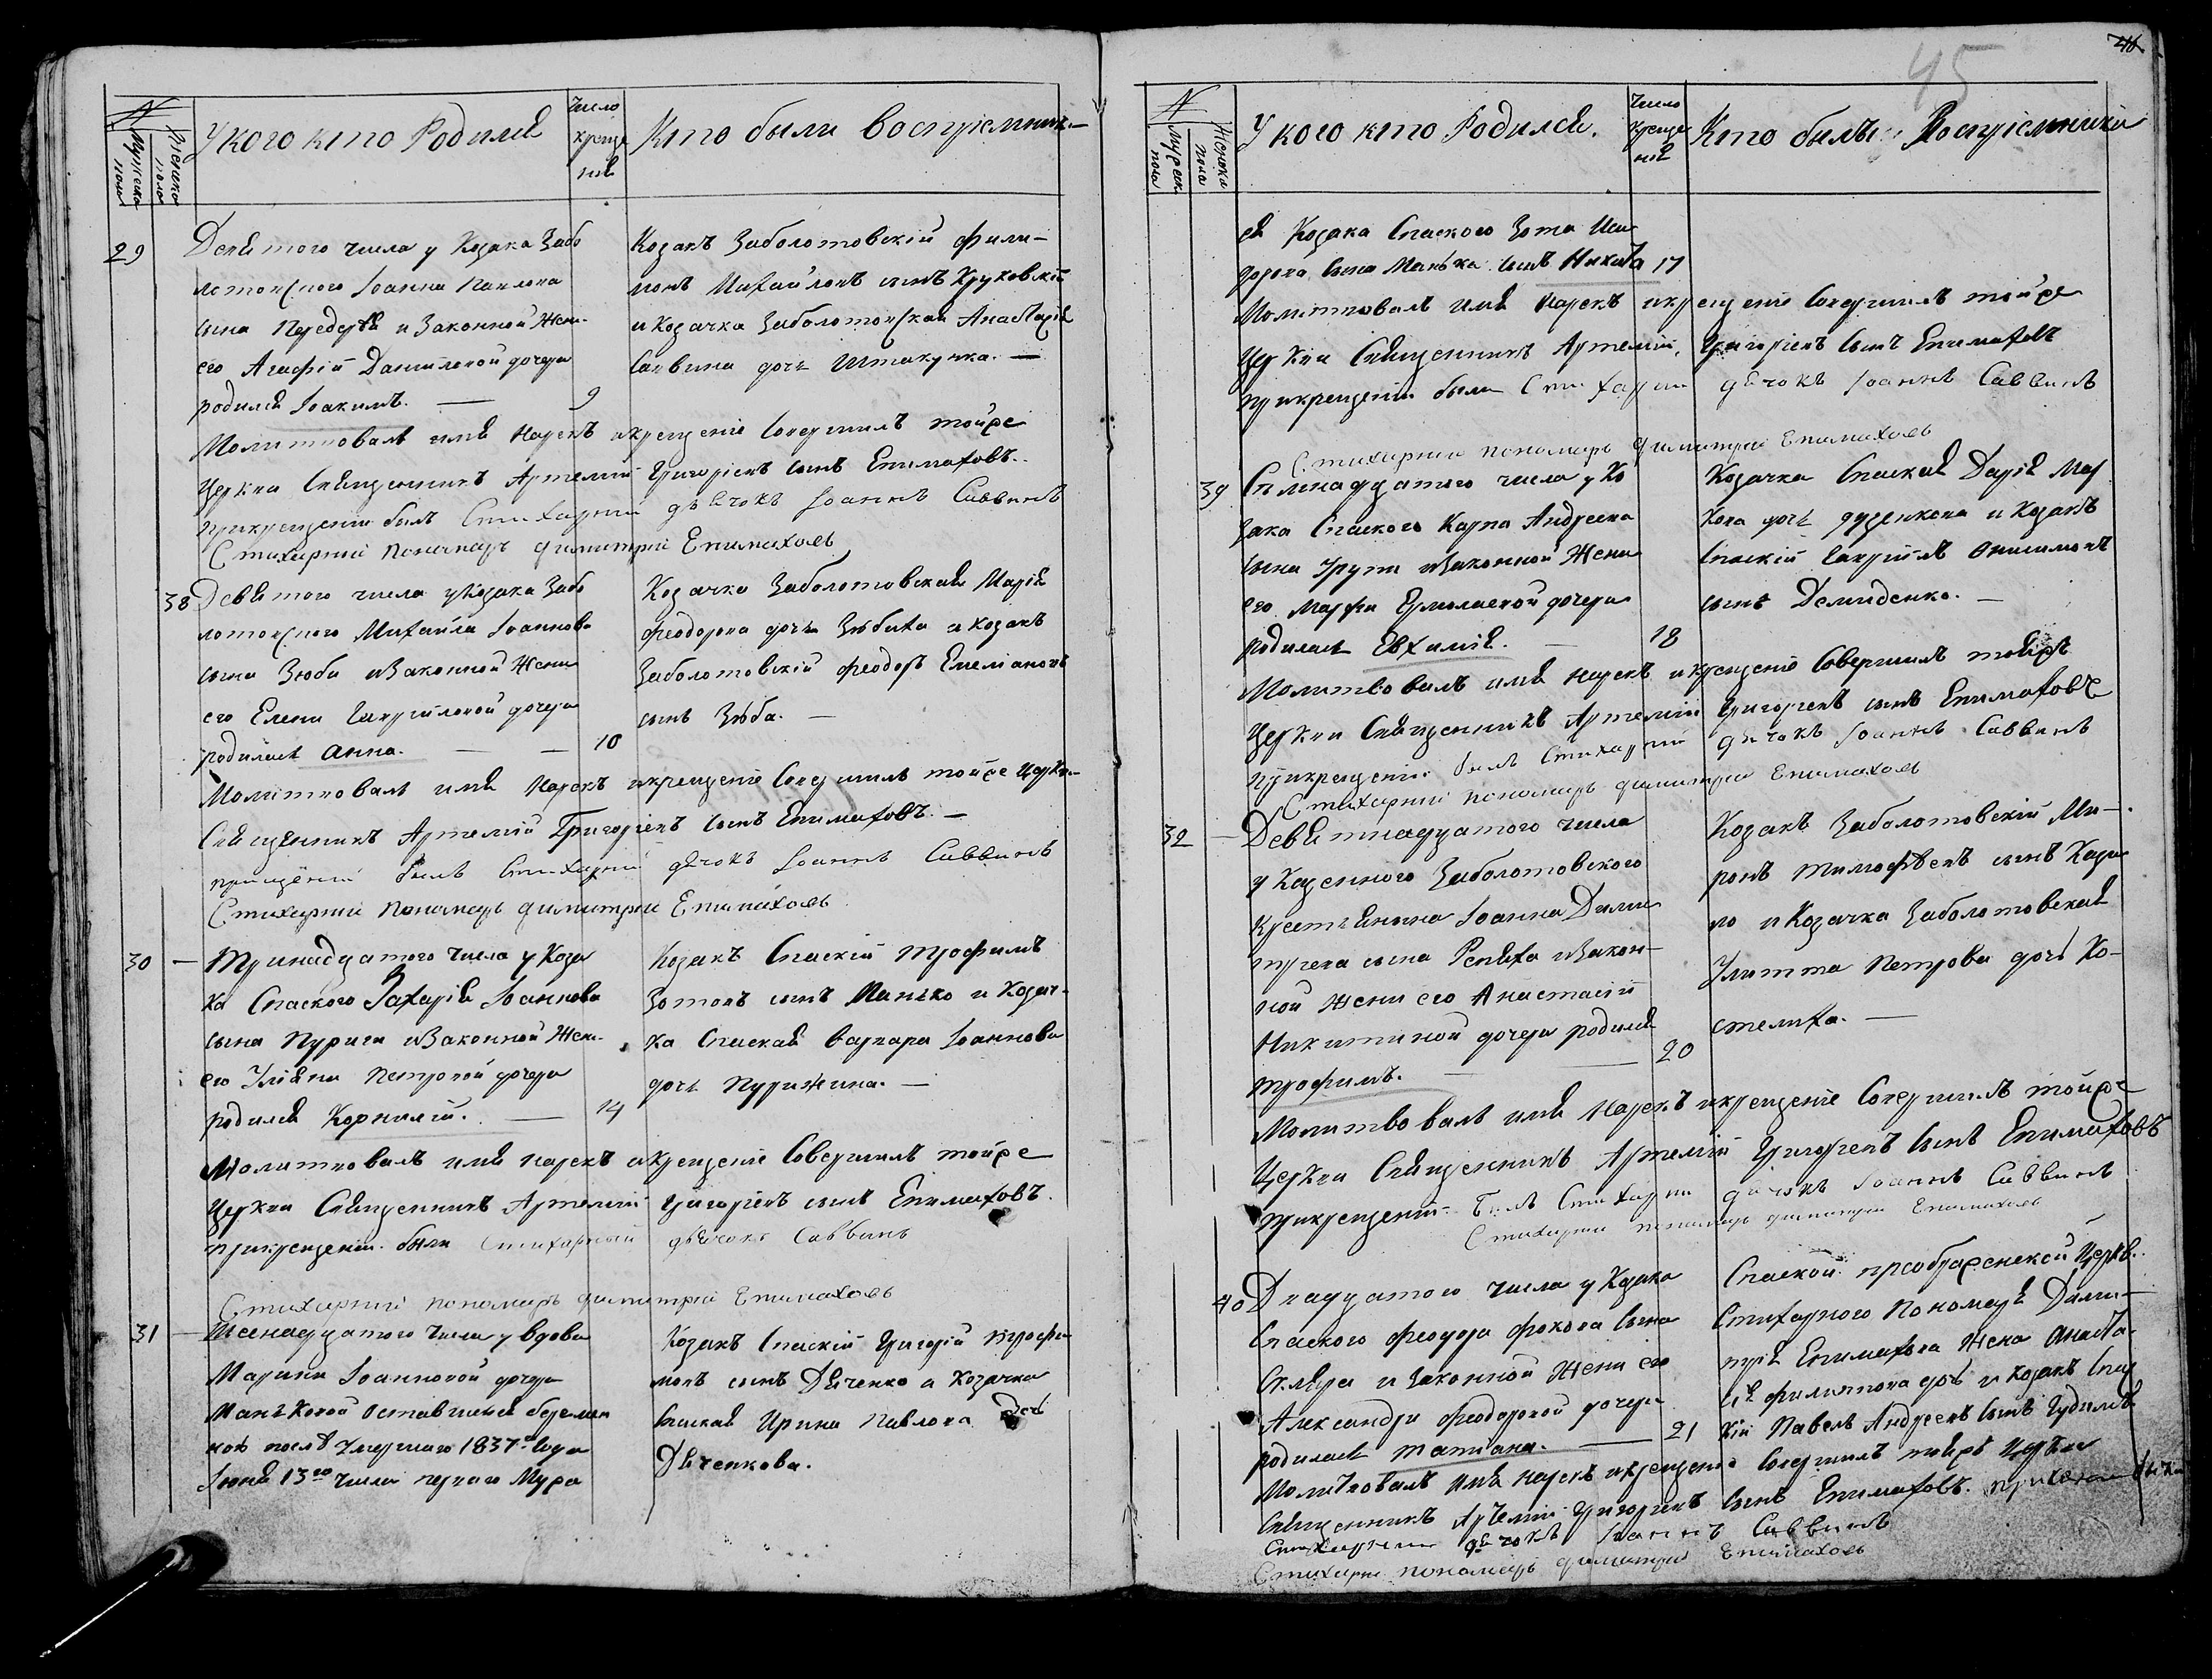 45
N
Мужеска пола
Женска пола
У кого кто Родился
Число крещенія
Кто были воспріемник.
29
Девятого числа у Козака Забо
лотовского Іоанна Павлова
сына и Законной Жени
его Агафіи Даниловой дочери
родился Іоакимъ. — 9
Козакъ Заболотовскій Фили-
моновъ Михайловъ сынъ Круковскій
и Козачка Заболотовская Анастасія
Саввина дочь —
Молитвовалъ имя нарекъ и крещеніе Совершилъ тойже
Церкви Священникъ Артемій Григоріевъ сынъ Епимаховъ.
при крещеніи былъ Стихарный дьячокъ Іоаннъ Саввинъ
Стихарній пономарь Димитрій Епимаховъ
38
Девятого числа у Козака Забо
лотовского Михаила Іоаннова
сына Зюби и Законной Жени
его Елени Гавриловой дочери
родилась Анна. — — 10
Козачка Заболотовская Марія
Феодорова дочь Зюбиха и козакъ
Заболотовскій Феодоръ Емеліановъ
сынъ Зюба. —
Молитвовалъ имя Нарекъ и крещеніе Совершилъ тойже Церкви
Священникъ Артемій Григоріевъ сынъ Епимаховъ. —
былъ Стихарній дячокъ Іоаннъ Саввинъ
Стихарній пономарь Димитрій Епимаховъ
30
Тринадцатого числа у Коза
ка Спаского Захарія Іоаннова
сына Пурига и Законной Жени
его Уліяни Петровой дочери
родился Корнилій. — 14
Козакъ Спаскій Трофимъ
Зотовъ сынъ Манько и Козач-
ка Спаская Варвара Іоаннова
дочь Пурижина. —
Молитвовалъ имя нарекъ и крещеніе Совершилъ тойже
Церкви Священникъ Артемій Григоріевъ сынъ Епимаховъ.
при крещеніи были Стихарный дьячокъ Саввинъ
Стихарній пономарь Димитрій Епимаховъ
31
Шеснадцатого числа у вдови
Марини Іоанновой дочери
Маньковой оставшейся беремен
ною послѣ умершаго 1837го Года
Іюня 13го числа перваго Мужа
Козакъ Спаскій Григорій Трофи
мовъ сынъ Дяченко и Козачка
Спаская Ирина Павлова дочь
Дяченкова.
N
Мужеск пола
Женска пола
У кого кто Родился.
Число крещенія
Кто были Воспріемники
ея Козака Спаского Зота Иси
дорова сына Манька сынъ Никита 17
Молитвовалъ имя нарекъ и крещеніе Совершилъ тойже
Церкви Священникъ Артемій Григоріевъ сынъ Епимаховъ
при крещеніи были Стихарни дячокъ Іоаннъ Саввинъ
Стихарній пономарь Димитрій Епимаховъ
39
Семнадцатого числа у Ко
зака Спаского Карпа Андреева
сына и Законной Жени
его Марфи Ермолаевой дочери
родилась Евхимія. — 18
Козачка Спаская Дарія Мар
кова дочь Дуденкова и Козакъ
Спаскій Гавріилъ Онисимовъ
сынъ Демиденко. —
Молитвовалъ имя нарекъ и крещеніе Совершилъ тойже
Церкви Священникъ Артемій Григоріевъ сынъ Епимаховъ
при крещеніи былъ Стихарній дячокъ Іоаннъ Саввинъ
Стихарній пономарь Димитрій Епимаховъ
32
Девятнадцатого числа
у Казенного Заболотовского
Крестьянина Іоанна Дими
тріева сына Репяха и Закон-
ной Жени его Анастасіи
Никитиной дочери родился
Трофимъ. — 20
Козакъ Заболотовскій Ми-
ронъ Тимофѣевъ сынъ
и Козачка Заболотовская
Улитта Петрова дочь Ко-
стелиха. —
Молитвовалъ имя Нарекъ и крещеніе Совершилъ тойже
Церкви Священникъ Артемій Григоріевъ сынъ Епимаховъ
при крещеніи былъ Стихарни дячокъ Іоаннъ Саввинъ
Стихарни пономарь Димитрій Епимаховъ
40
Двадцатого числа у Козака
Спаского Феодора Фокова сына
Скляра и Законной Жени его
Александри Феодоровой дочери
родилась Татіана. — 21
Спаской преображенской Церкв.
Стихарного Пономаря Дими-
трія Епимахова Жена Анаста-
сія Филиппова дочь и Козакъ Спас
кій Павелъ Андреевъ сынъ
Молитвовалъ имя нарекъ и крещеніе Совершилъ тойже Церкви
Священникъ Артемій Григоріевъ сынъ Епимаховъ.
Стихарни дячокъ Іоаннъ Саввинъ
Стихарни пономарь Димитрій Епимаховъ